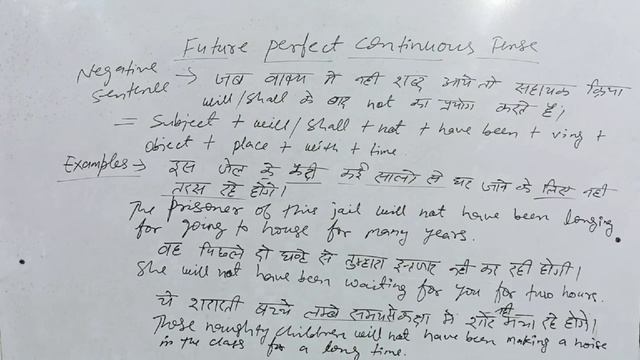 Future perfect continuous Tense
Negative sentence → जब वाक्य मे नही शब्द आये तो सहायक क्रिया
will/shall के बाद not का प्रयोग करते है।
= Subject + will/shall + not + have been + ving +
object + place + with + time.
Examples → इस जेल के कैदी कई सालो से घर जाने के लिए नही
तरस रहे होगे।
The prisoner of this jail will not have been longing
for going to house for many years.
वह पिछले दो घण्टे से तुम्हारा इन्तजार नही कर रही होगी।
She will not have been waiting for you for two hours.
ये शरारती बच्चे लम्बे समय से कक्षा मे शोर नही मचा रहे होगे।
These naughty children will not have been making a noise
in the class for a long time.